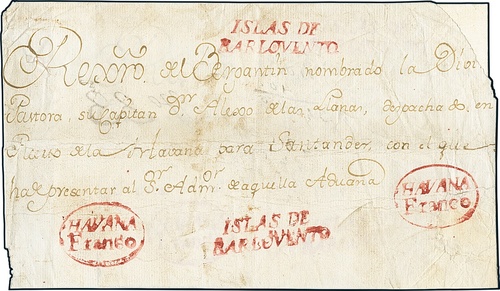 ISLAS DE
BARLOVENTO
del Bergantin nombrado la Divi
Pastora, su Capitan Dn. Alexo de las Llanas, despachado, en
de la Havana para Santander, con el que
ha de presentar al Sr. Admor. de aquella Aduana
HAVANA
Franco
ISLAS DE
BARLOVENTO
HAVANA
Franco